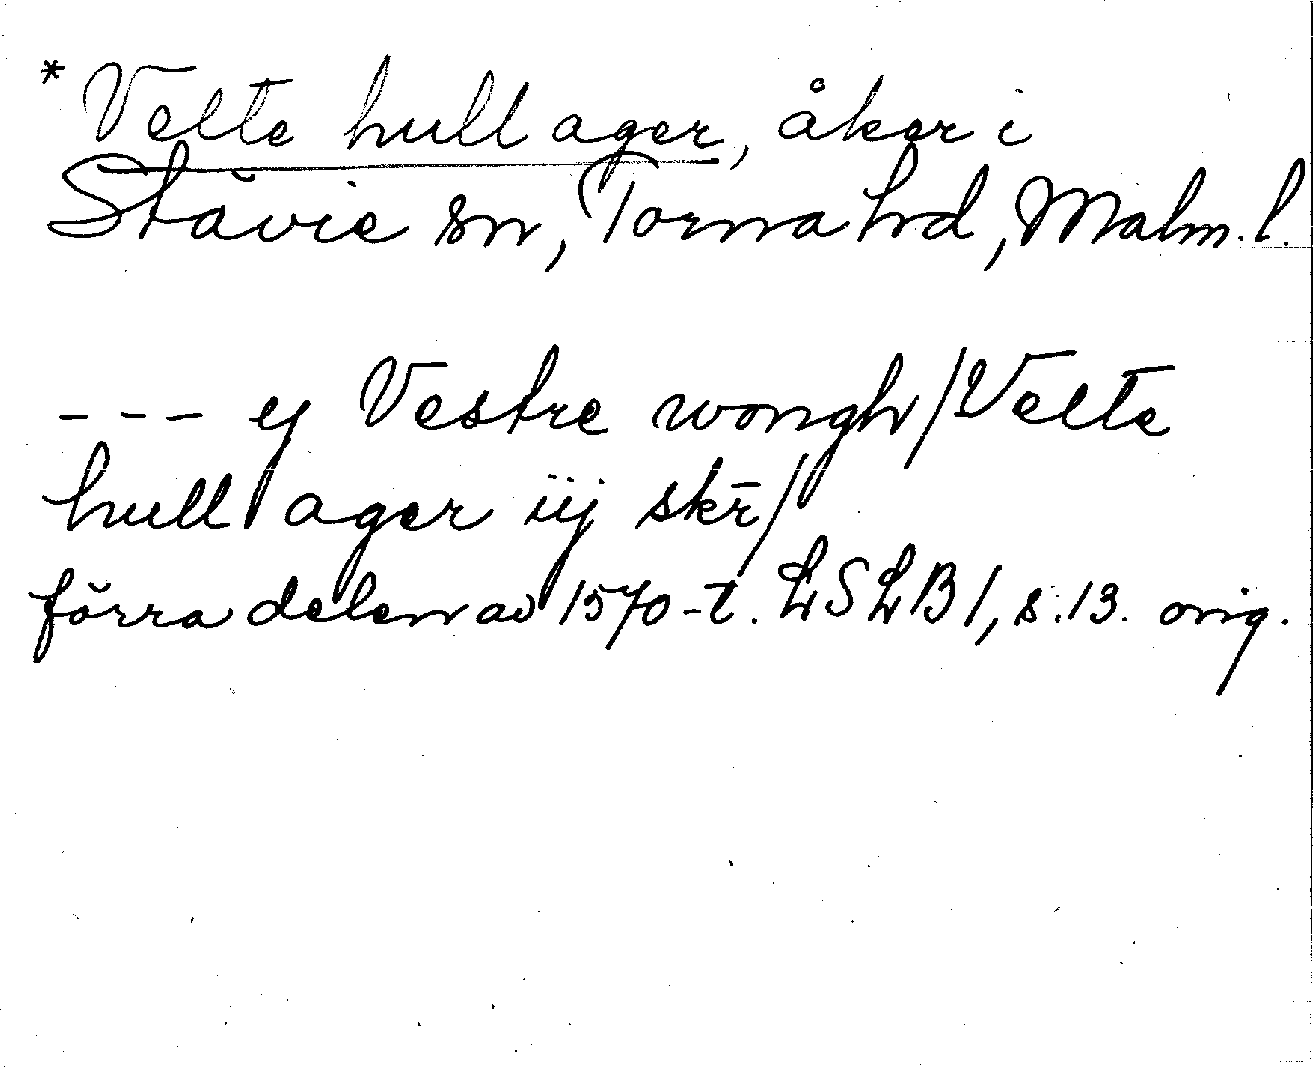 * Velte hull ager, åker i
Stävie sn, Torna hd, Malm. l.
- - - ej Vestre wongh/Velte
hull ager iij skr̄/
förra delen av 1570-t. LSLB 1, s. 13. orig.